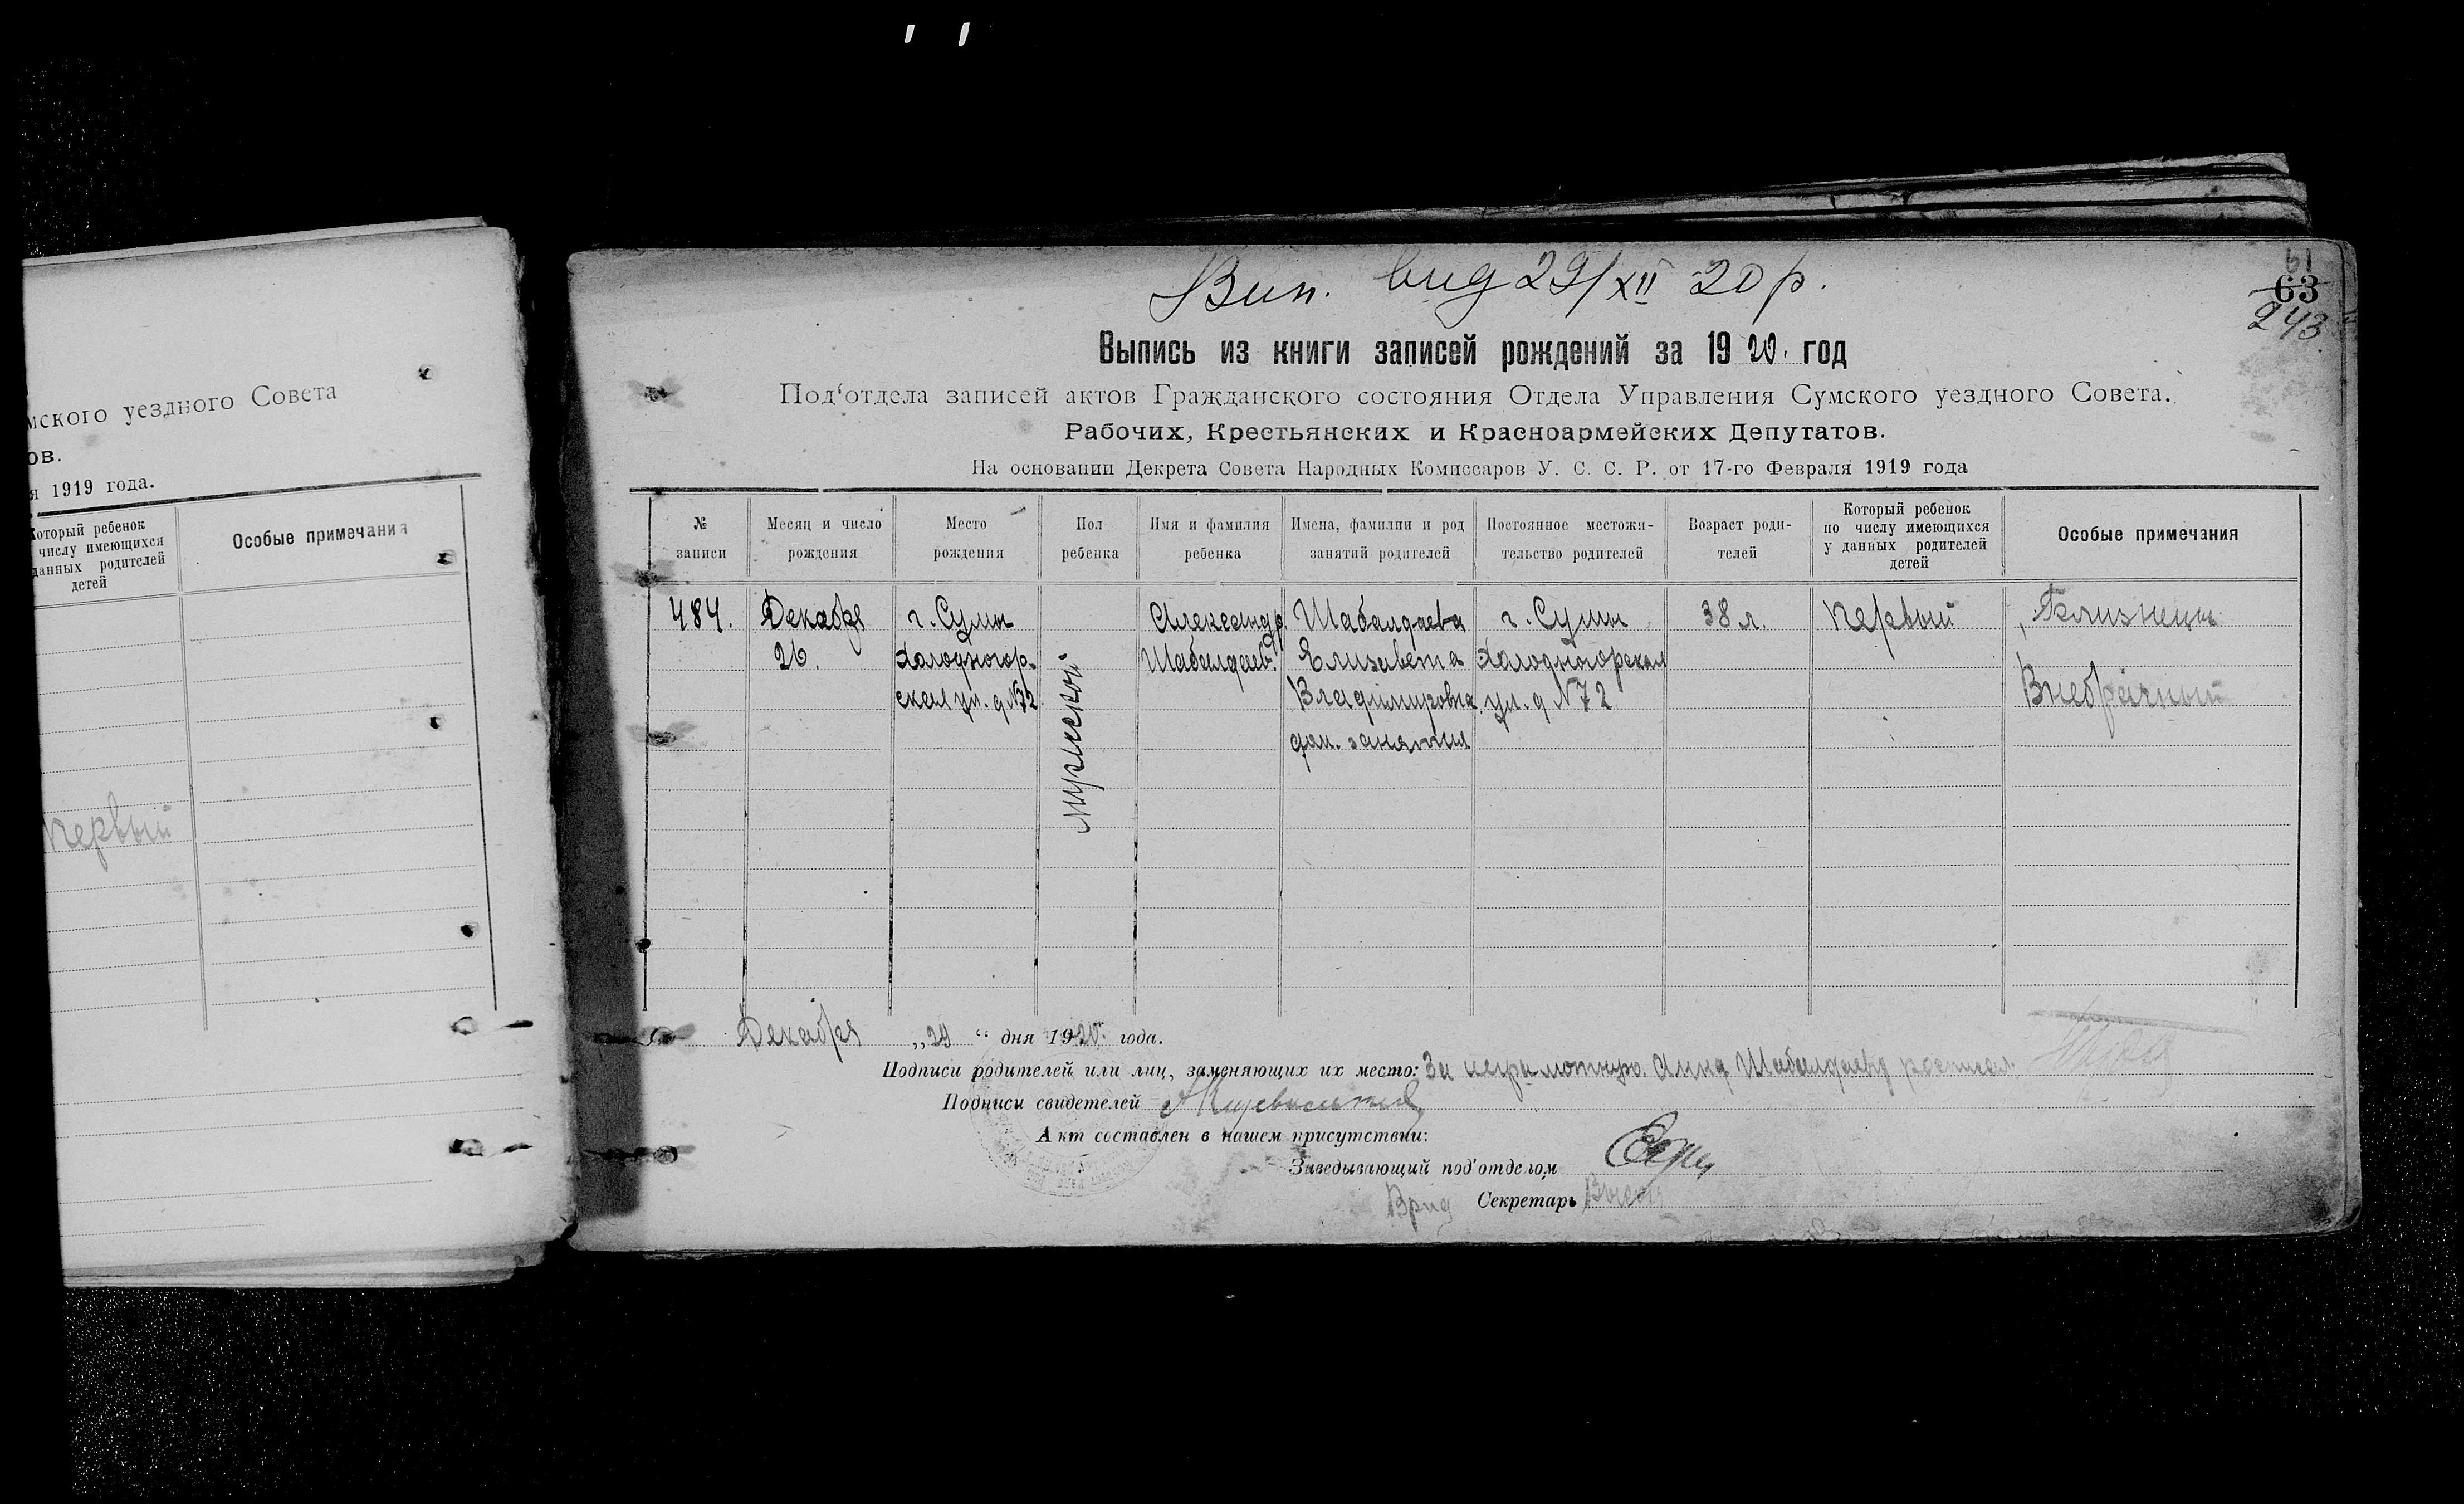 мского уездного Совета
ов.
я 1919 года.
Который ребенок
числу имеющихся
данных родителей
детей
Особые примечания
Первый
Вип. вид 29/XII 20 р.
61
63
243
Выпись из книги записей рождений за 1920. год
Под‘отдела записей актов Гражданского состояния Отдела Управления Сумского уездного Совета.
Рабочих, Крестьянских и Красноармейских Депутатов.
На основании Декрета Совета Народных Комиссаров У. С. С. Р. от 17-го Февраля 1919 года
№
записи
Месяц и число
рождения
Место
рождения
Пол
ребенка
Имя и фамилия
ребенка
Имена, фамилии и род
занятий родителей
Постоянное местожи-
тельство родителей
Возраст роди-
телей
Который ребенок
по числу имеющихся
у данных родителей
детей
Особые примечания
484.
Декабря
26.
г. Сумы
Холодногор-
ская ул. д №72
мужской
Александр
Шабалдаев
Шабалдаева
Елизавета
Владимировна
дом. занятия
г. Сумы
Холодногорская
ул. д №72
38 л.
Первый
Близнецы
Внебрачный
Декабря „29“ дня 1920. года.
Подписи родителей или лиц, заменяющих их место: За неграмотную Анну Шабалдаеву
Подписи свидетелей
Акт составлен в нашем присутствии:
Заведывающий под‘отделом
Врид Секретарь